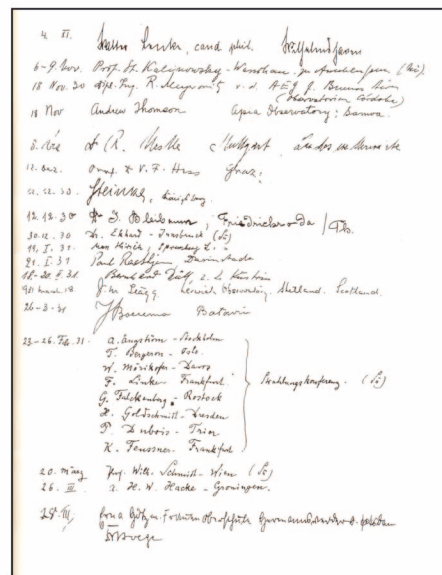 4. XI. Walter Linke, cand. phil. Wilhelmsform
6-9. Nov. Prof. St. Kalinowsky - Warschau.
18 Nov. 30 Dipl. Ing. R. v. d. AEG f. Buenos Aires
(Observatorium Córdoba)
18 Nov Andrew Thomson Apia Observatory: Samoa.
Dr R. Mecke Stuttgart
12. Dez. Prof. Dr V. F. Hess Graz.
22. 12. 30. Steinke, Königsberg
12.12.30 Dr J. , Friedrichroda / Th.
30.12.30 Dr. Ekhart - Innsbruck (Sö)
19. I. 31. Max Hirsch, Spremberg L.
21. I. 31 Paul Raethjen, Darmstadt
18.-20. II 31. Bernhard Düll z. Z. Künstein
March J. M. Stagg Lerwick Observatory. Shetland. Scotland.
26-3-31 J Boerema Batavia
23-26. Febr. 31. A. Ångström - Stockholm
T. Bergeron - Oslo.
W. Mörikofer - Davos
F. Linke Frankfurt
G. Falckenberg - Rostock
H. Goldschmidt - Dresden
P. Dubois - Trier
K. Feussner - Frankfurt
Strahlungskonferenz. (Sö)
20. März Prof. Wilh. Schmidt - Wien (Sö)
26. III a. H. W. Hacke - Groningen.
28. III. Erna Götzen. Frauen Oberschule Hermannswerder b. Potsdam